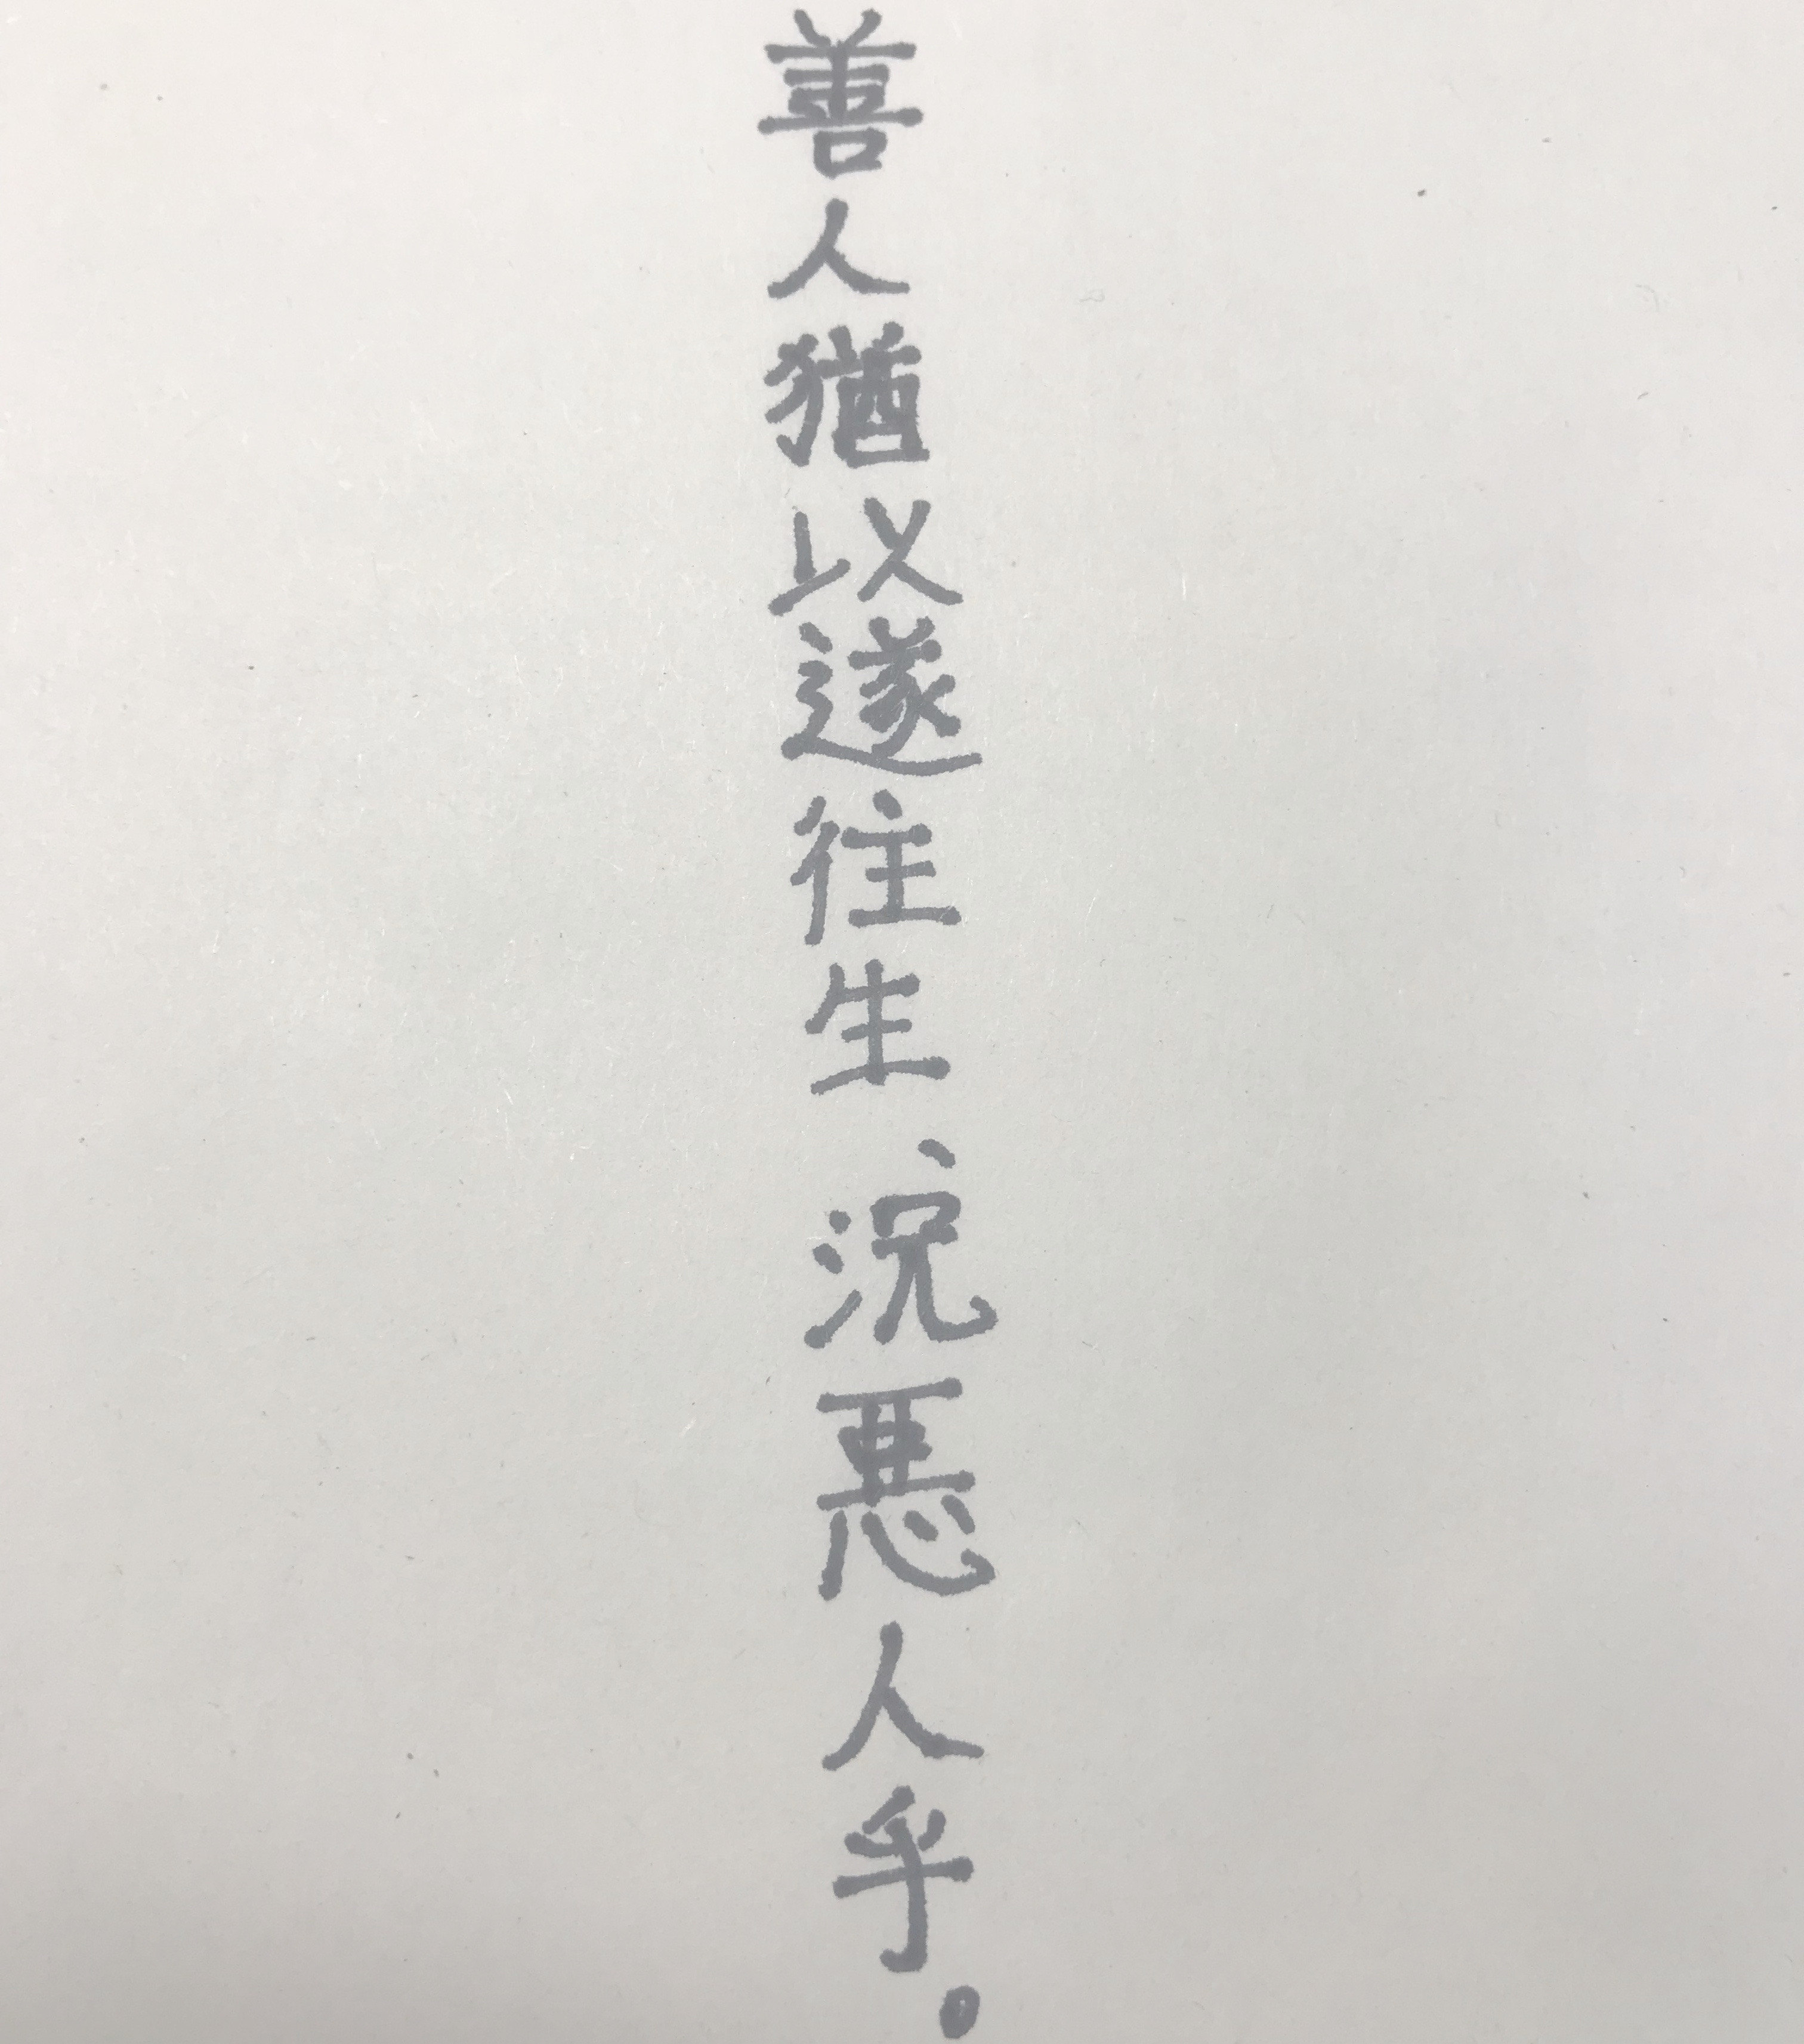 善人猶以遂往生、況悪人乎。